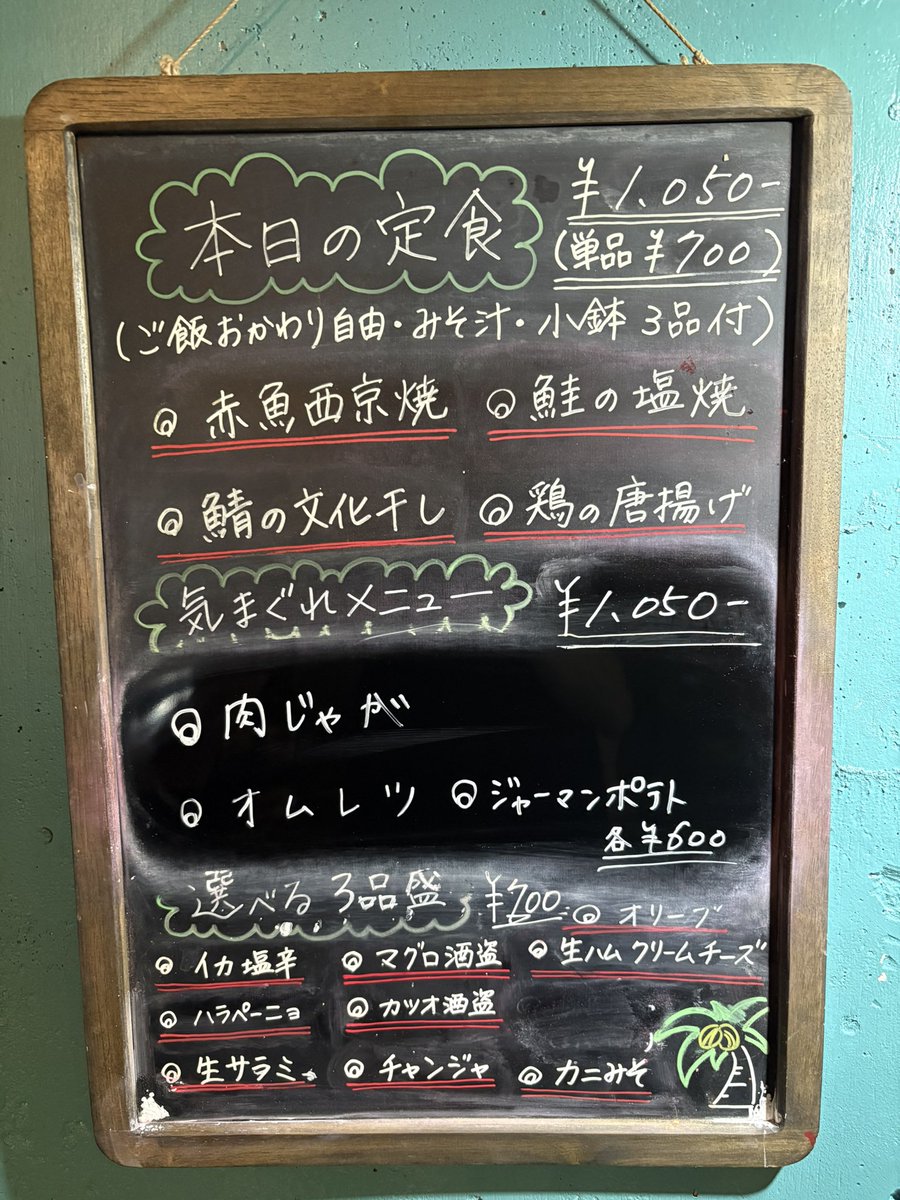 本日の定食 ¥1.050-
(単品 ¥700)
(ご飯おかわり自由・みそ汁・小鉢 3品付)
◎ 赤魚西京焼 ◎ 鮭の塩焼
◎ 鯖の文化干し ◎ 鶏の唐揚げ
気まぐれメニュー ¥1.050-
◎ 肉じゃが
◎ オムレツ ◎ ジャーマンポテト
各¥600
選べる 3品盛 ¥700 ◎ オリーブ
◎ イカ塩辛 ◎ マグロ酒盗 ◎ 生ハム クリームチーズ
◎ ハラペーニョ ◎ カツオ酒盗
◎ 生サラミ ◎ チャンジャ ◎ カニみそ